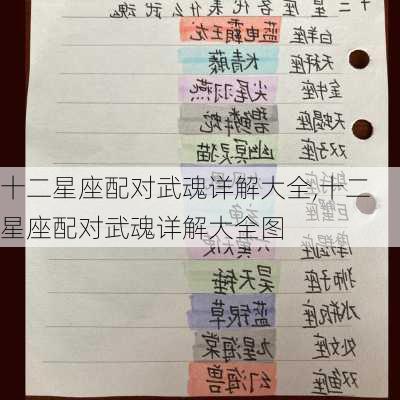 十二星座各代表什么武魂
白羊座 蓝电霸王龙
天秤座 青藤
金牛座 尖尾羽燕
天蝎座 碧鳞蛇
双子座 幽冥灵猫
十二星座配对武魂详解大全,十二
巨蟹座
星座配对武魂详解大全图
摩羯座 六翼天使
狮子座 昊天锤
水瓶座 蓝银草
处女座 九星海棠
双鱼座 幻海兽